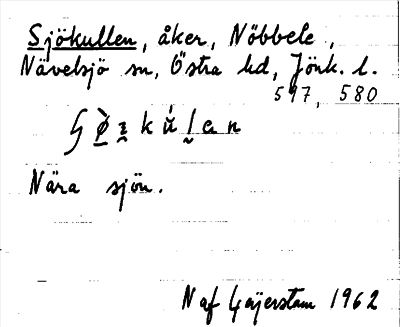 Sjökullen, åker, Nöbbele,
Nävelsjö sn, Östra hd, Jönk. l.
597, 580
Nära sjön.
N af Geijerstam 1962